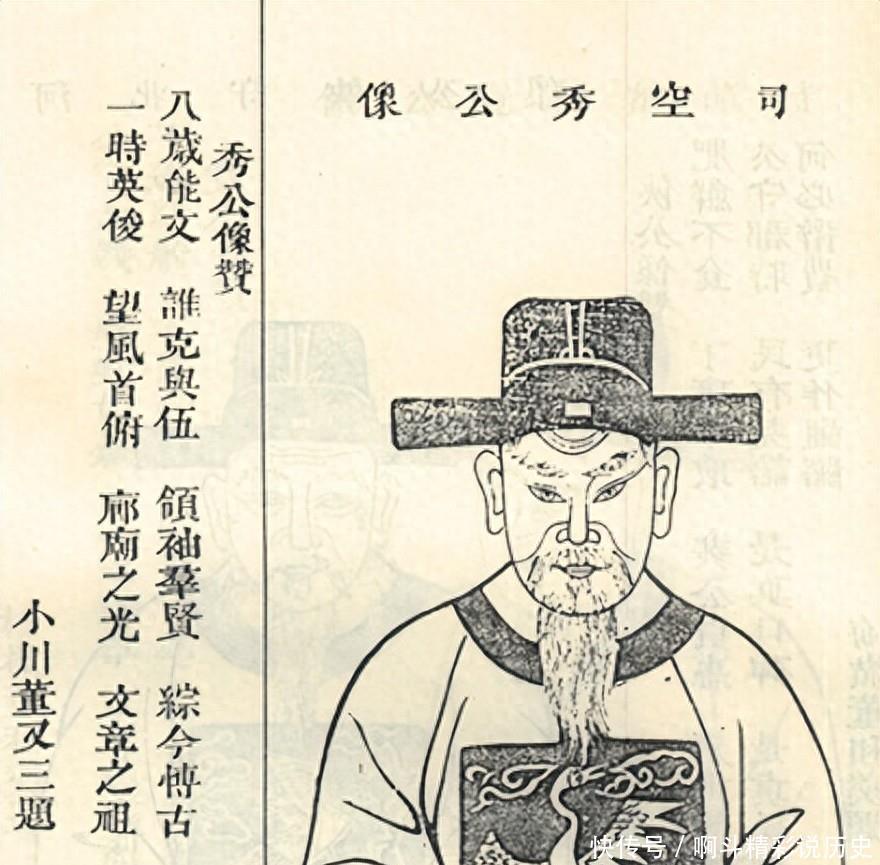 司空秀公像
秀公像贊
八歲能文 誰克與伍 領袖羣賢 綜今愽古
一時英俊 望風首俯 廊廟之光 文章之祖
小川董又三題
快传号 / 啊斗精彩说历史